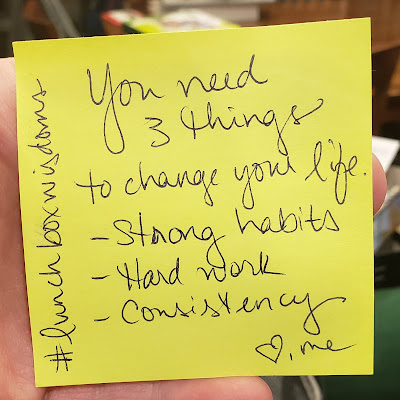 You need
3 things
to change your life.
- Strong habits
- Hard work
- Consistency
♡, me
#lunchboxwisdoms